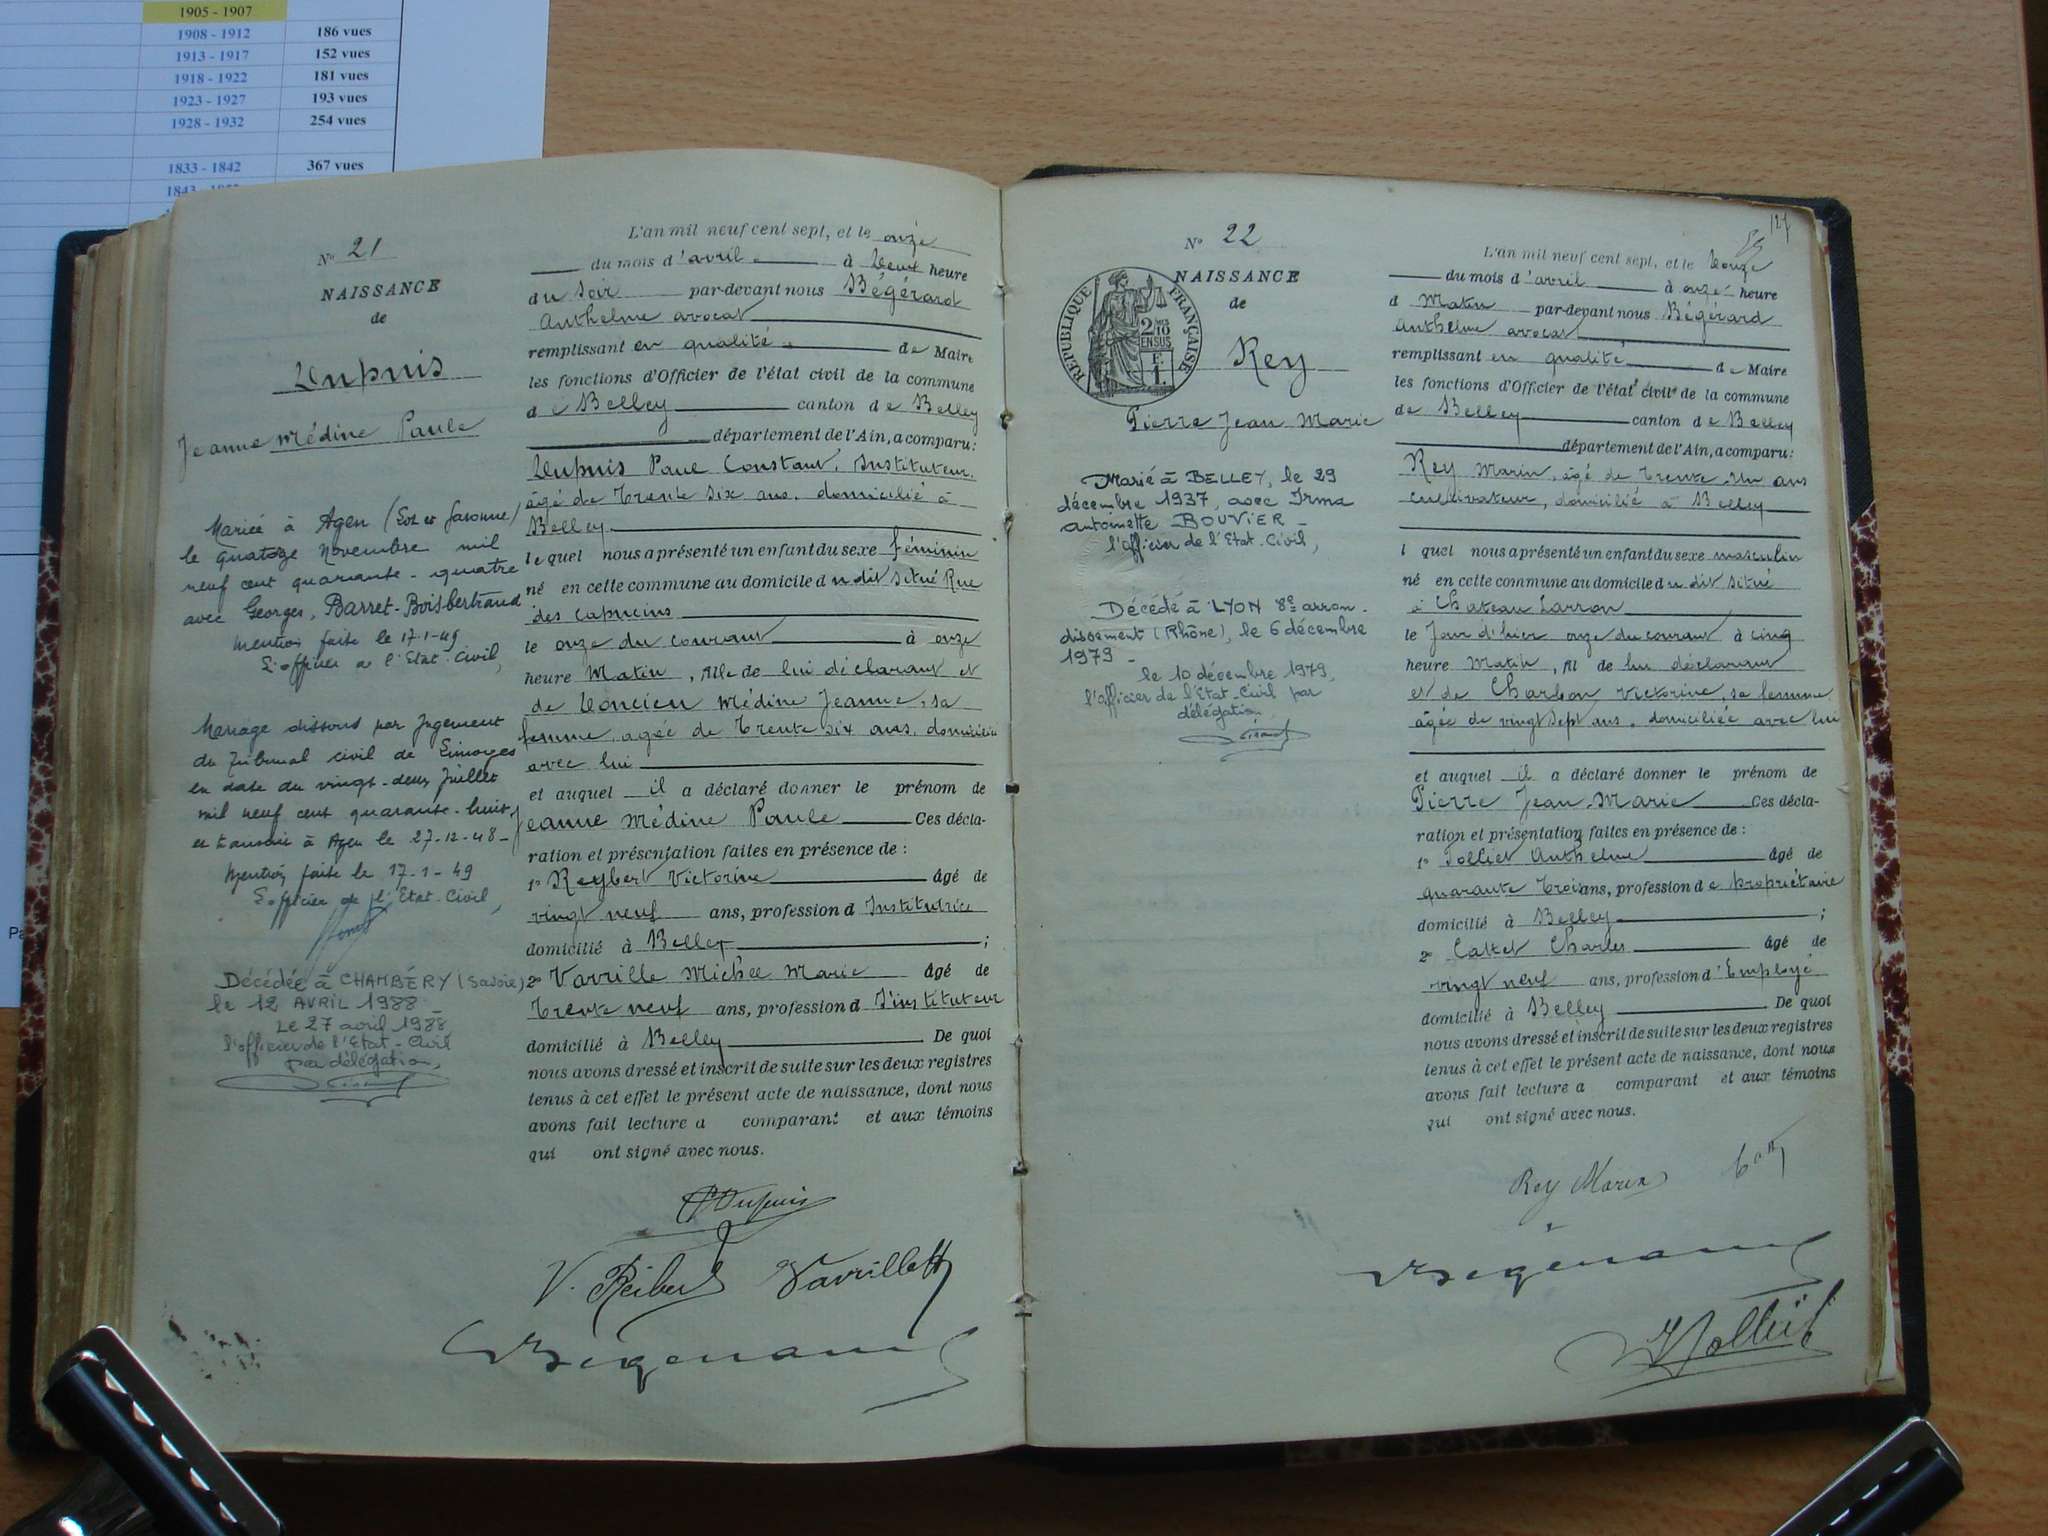 1905 - 1907
1908 - 1912 186 vues
1913 - 1917 152 vues
1918 - 1922 181 vues
1923 - 1927 193 vues
1928 - 1932 254 vues
1833 - 1842 367 vues
N° 21
NAISSANCE
de
Dupuis
Jeanne Médine Paule
Mariée à Agen (Lot et Garonne)
le quatorze Novembre mil
neuf cent quarante - quatre
avec Georges, Barret-Boisbertrand
Mention faite le 17-1-49
L'officier de l'Etat-Civil,
Mariage dissous par Jugement
du Tribunal civil de Limoges
en date du vingt-deux Juillet
mil neuf cent quarante-huit
et transcrit à Agen le 27-12-48-
Mention faite le 17-1-49
L'officier de l'Etat-Civil,
Décédée à CHAMBÉRY (Savoie)
le 12 AVRIL 1988 -
Le 27 avril 1988,
l'officier de l'Etat-Civil
par délégation,
L'an mil neuf cent sept, et le onze
du mois d'avril à Deux heure
du Soir par-devant nous Bégérard
Anthelme avocat
remplissant en qualité de Maire
les fonctions d'Officier de l'état civil de la commune
de Belley canton de Belley
département de l'Ain, a comparu:
Dupuis Paul Constant, Instituteur,
âgé de Trente Six ans, domicilié à
Belley
lequel nous a présenté un enfant du sexe féminin
né en cette commune au domicile du dit situé Rue
des Capucins
le onze du courant à onze
heure Matin, fille de lui déclarant et
de Doncieu Médine Jeanne, sa
femme, agée de Trente six ans, domiciliée
avec lui
et auquel il a déclaré donner le prénom de
Jeanne Médine Paule Ces décla-
ration et présentation faites en présence de :
1° Reybert Victorine âgé de
vingt neuf ans, profession d Institutrice
domicilié à Belley ;
2° Vavrille Michel Marie âgé de
Trente neuf ans, profession d'Instituteur
domicilié à Belley De quoi
nous avons dressé et inscrit de suite sur les deux registres
tenus à cet effet le présent acte de naissance, dont nous
avons fait lecture a comparant et aux témoins
qui ont signé avec nous.
P Dupuis
V. Reibert Vavrillett
Begerard
127
N° 22
NAISSANCE
de
Rey
Pierre Jean Marie
RÉPUBLIQUE FRANÇAISE
2 MES
10
EN SUS
F.
1.
Marié à BELLEY, le 29
décembre 1937, avec Irma
Antoinette BOUVIER -
l'officier de l'Etat-Civil,
Décédé à LYON 8e arron-
dissement (Rhône), le 6 décembre
1979 -
le 10 décembre 1979,
l'officier de l'Etat-Civil par
délégation
L'an mil neuf cent sept, et le Douze
du mois d'avril à onze heure
d Matin par-devant nous Bégérard
Anthelme avocat
remplissant en qualité de Maire
les fonctions d'Officier de l'état civil de la commune
de Belley canton de Belley
département de l'Ain, a comparu:
Rey Marin, âgé de Trente-Un ans
Cultivateur, domicilié à Belley
l quel nous a présenté un enfant du sexe masculin
né en cette commune au domicile du dit situé
à Chateau Larron
le Jour d'hier onze du courant à cinq
heure Matin, fil de lui déclarant
et de Charbon Victorine, sa femme
âgée de vingt Sept ans, domiciliée avec lui
et auquel il a déclaré donner le prénom de
Pierre Jean-Marie Ces décla-
ration et présentation faites en présence de :
1° Tolliet Anthelme âgé de
quarante Trois ans, profession de Propriétaire
domicilié à Belley ;
2° Cattet Charles âgé de
vingt neuf ans, profession d'Employé
domicilié à Belley De quoi
nous avons dressé et inscrit de suite sur les deux registres
tenus à cet effet le présent acte de naissance, dont nous
avons fait lecture a comparant et aux témoins
qui ont signé avec nous.
Rey Marin
Begerard
Tolliet